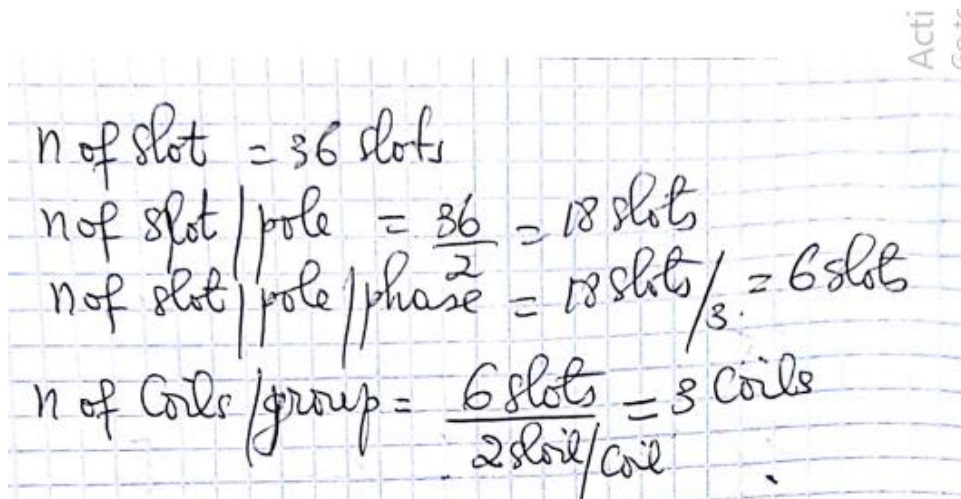 Acti
n of slot = 36 slots
n of slot / pole = 36/2 = 18 slots
n of slot / pole / phase = 18 slots / 3. = 6 slots
n of Coils / group = 6 slots / 2 / coil = 3 Coils